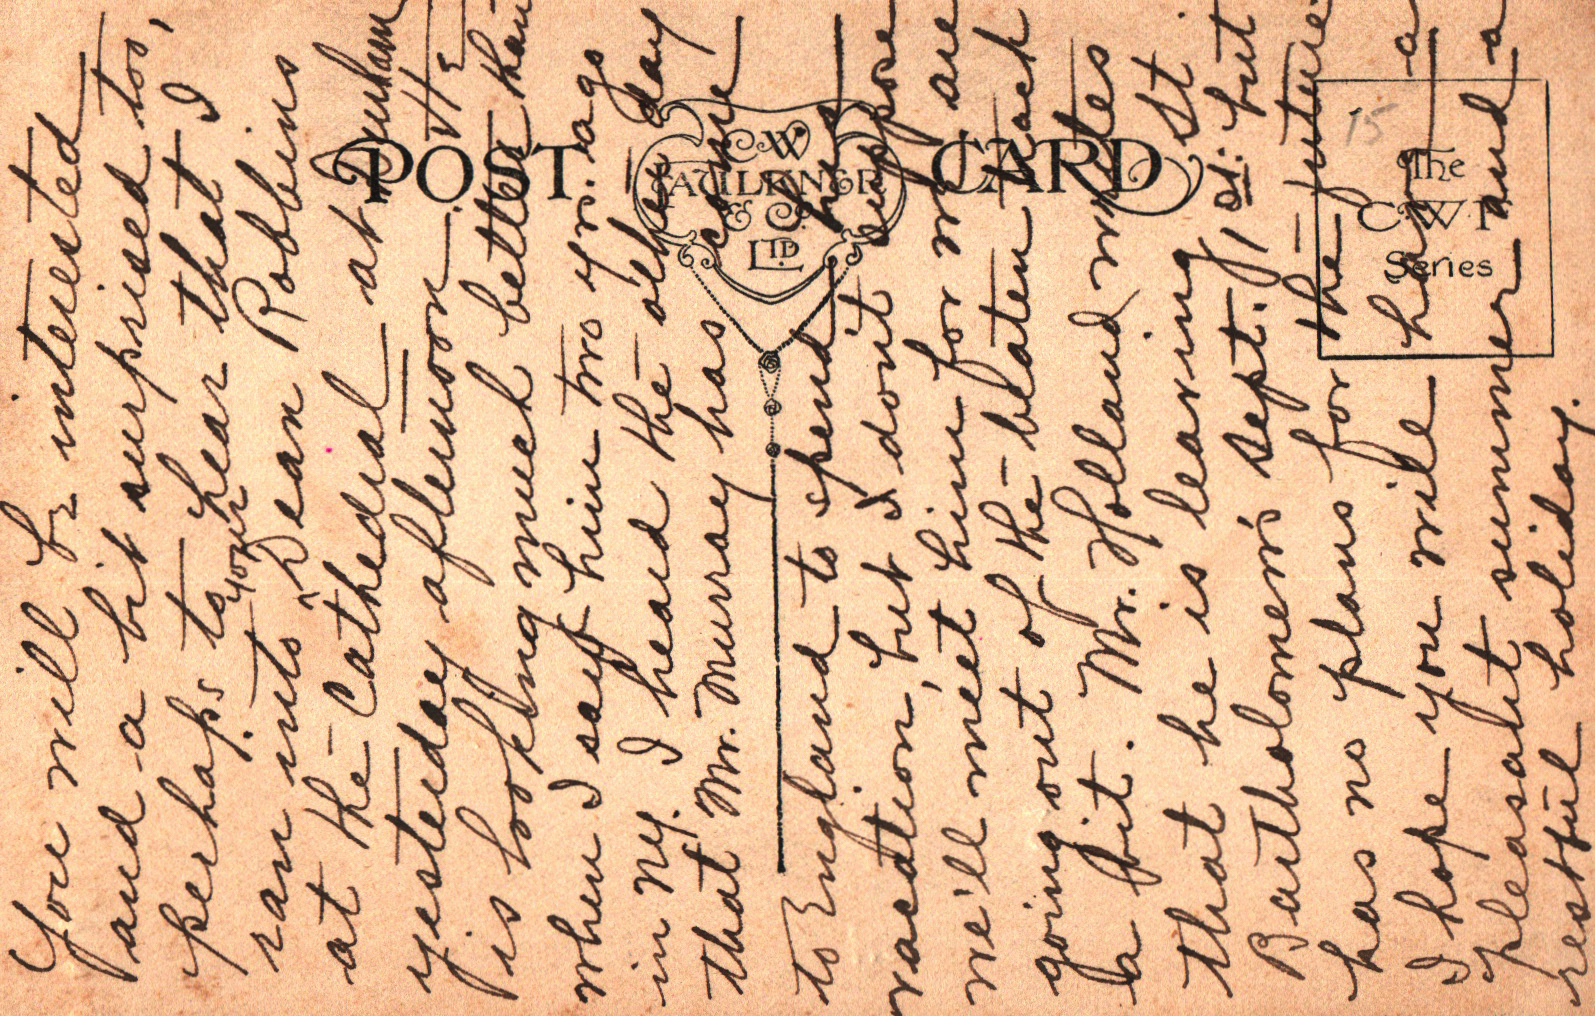 You will be interested
and a bit surprised too,
perhaps to hear that I
ran into your Dean Robbins
at the Cathedral at Durham
yesterday afternoon. He
is looking much better than
when I saw him two yrs. ago
in NY. I heard the other day
that Mr. Murray has come
to England to spend his
vacation, but I don't suppose
we'll meet him for we are
going out of the beaten track
a bit. Mr. Holland writes
that he is leaving St
Bartholomew's Sept. 1st. but
has no plans for the future.
I hope you will have a
pleasant summer and a
restful holiday.
POST CARD
C. W.
FAULKNER
& Co.
LTD
15
The
C W F
Series